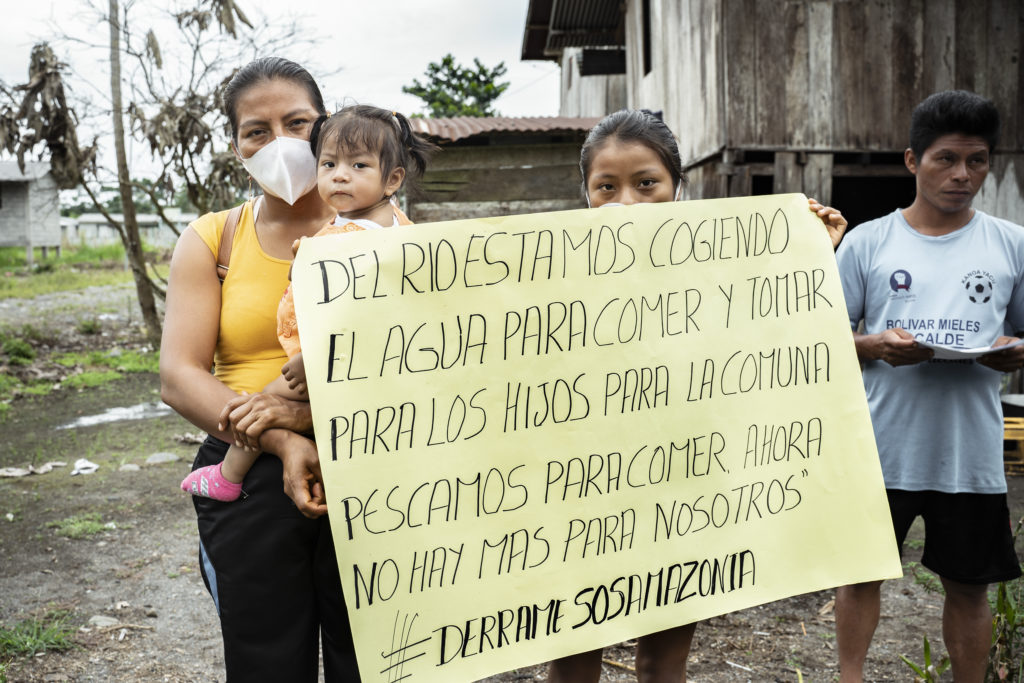 DEL RIO ESTAMOS COGIENDO
EL AGUA PARA COMER Y TOMAR
PARA LOS HIJOS PARA LA COMUNA
PESCAMOS PARA COMER. AHORA
NO HAY MAS PARA NOSOTROS"
#DERRAMESOSAMAZONIA
BOLIVAR MIELES
CALDE